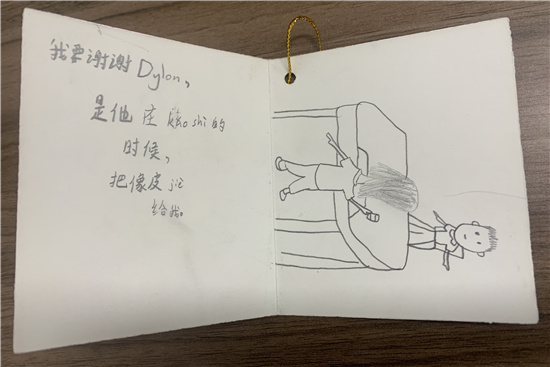 我要谢谢Dylon,
是他在kǎo shi的
时候,
把像皮jiè
给我。